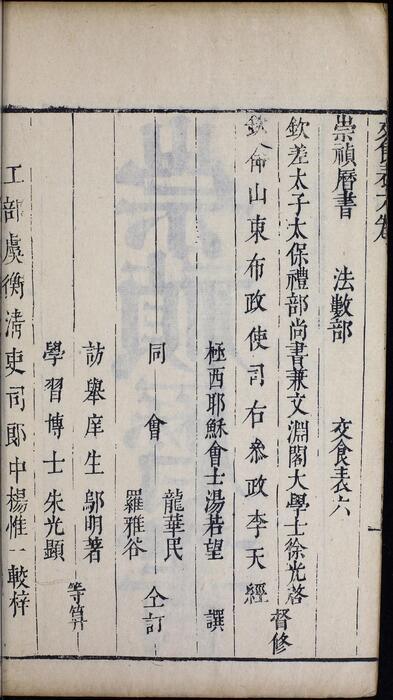 交食表六卷
崇禎曆書 法數部 交食表六
欽差太子太保禮部尚書兼文淵閣大學士徐光啓
督修
欽命山東布政使司右參政李天經
極西耶穌會士湯若望 譔
龍華民
同會 仝訂
羅雅谷
訪舉庠生鄔明著
等算
學習博士朱光顯
工部虞衡清吏司郎中楊惟一較梓